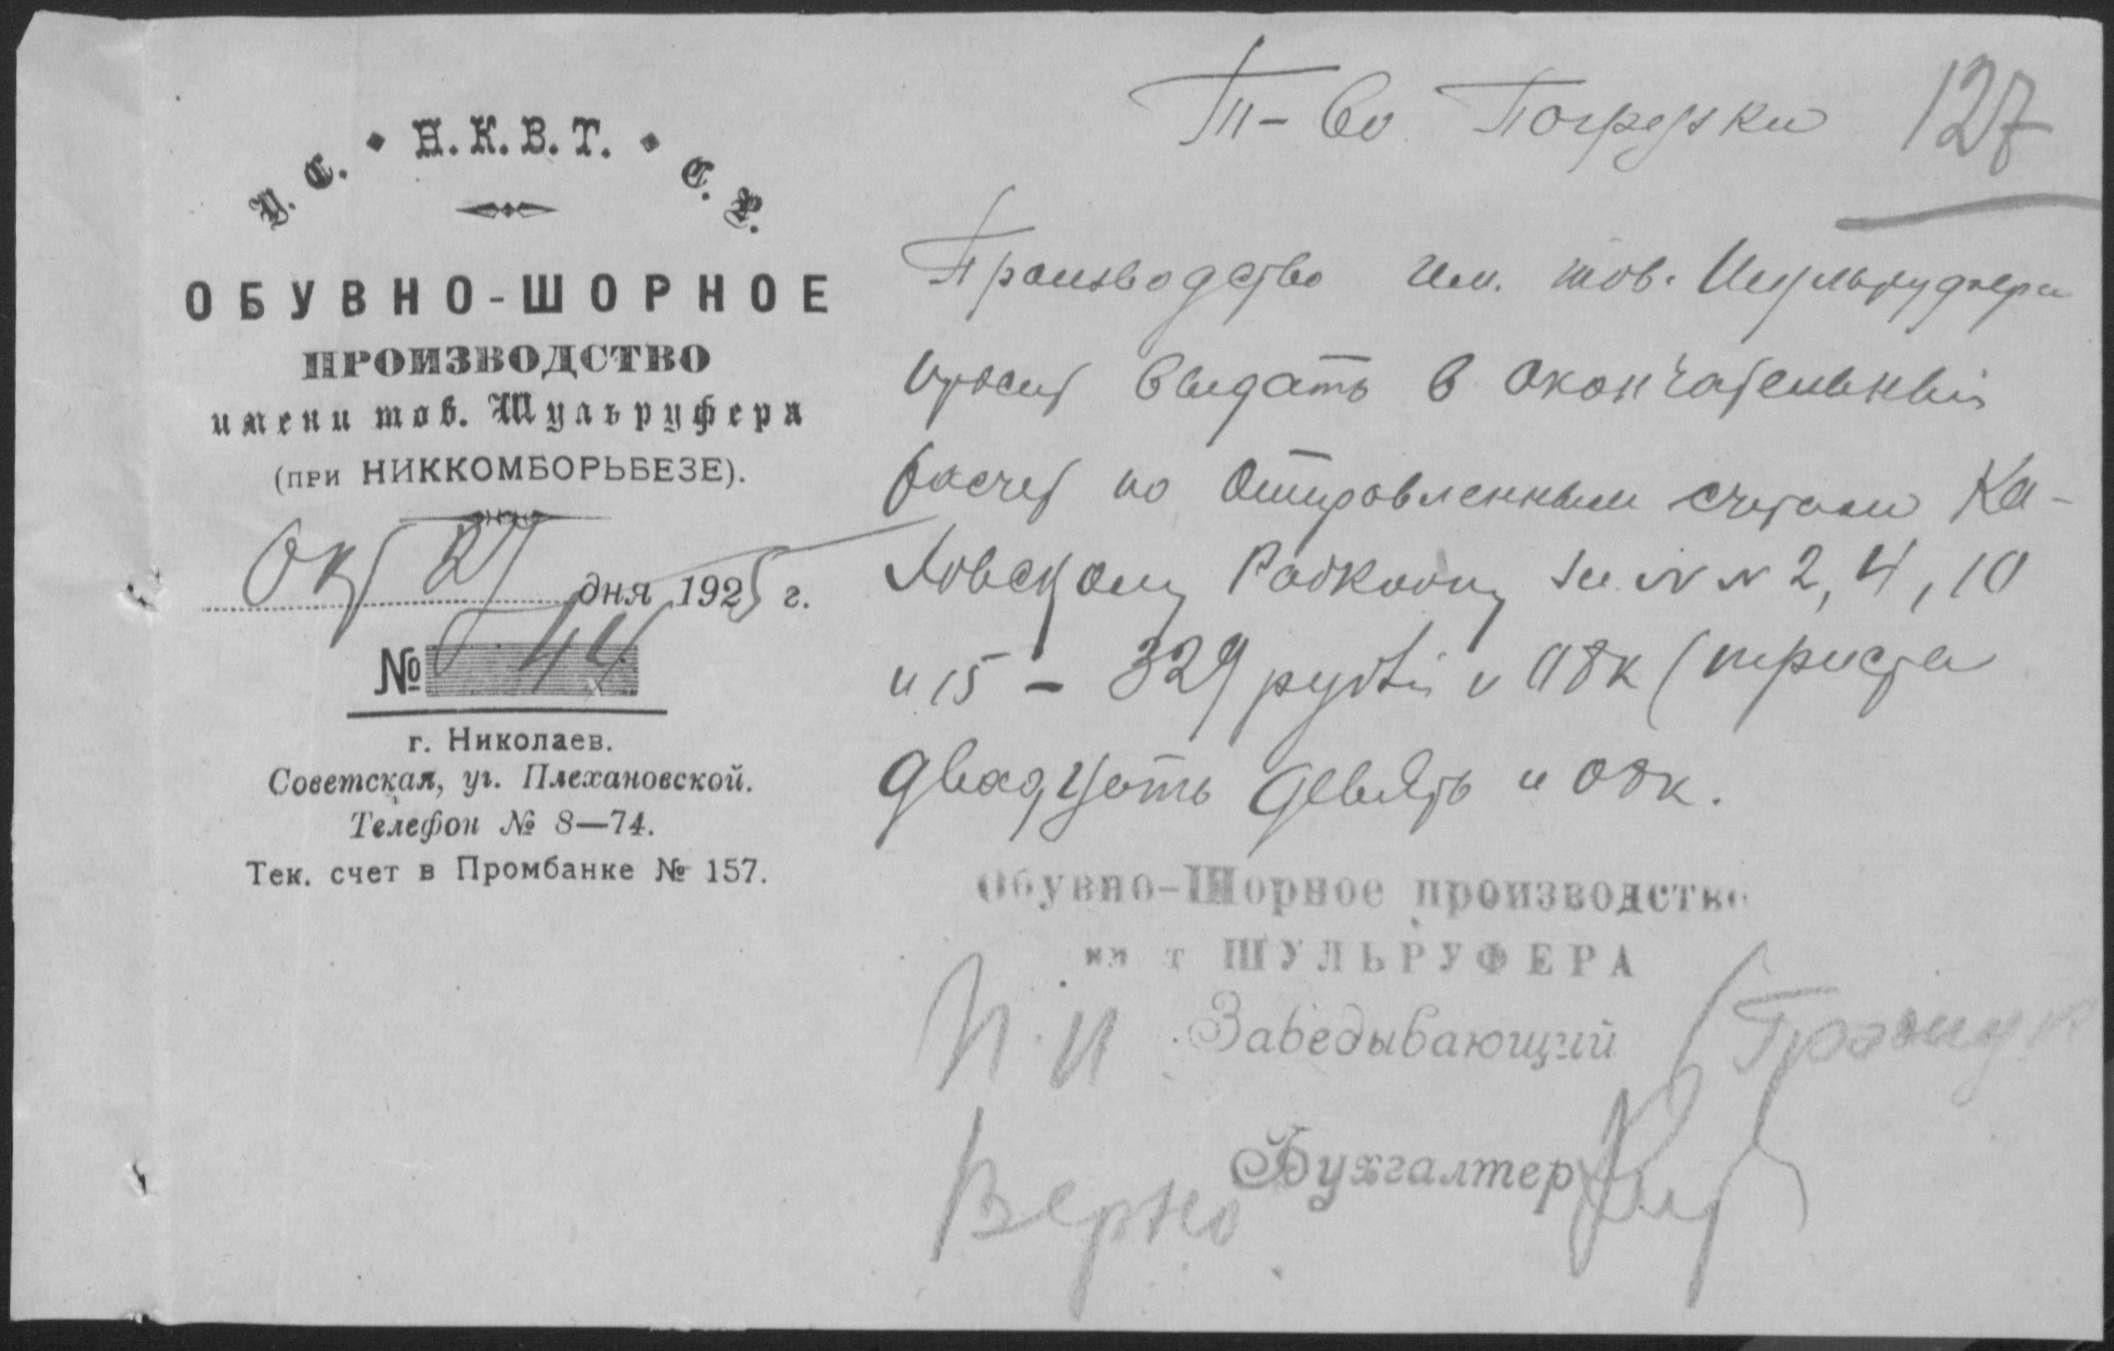 У. С. • Н. К. В. Т. • С. Р.
ОБУВНО-ШОРНОЕ
ПРОИЗВОДСТВО
имени тов. Шульруфера
(при НИККОМБОРЬБЕЗЕ).
Окт 27 дня 1925 г.
№ 44
г. Николаев.
Советская, уг. Плехановской.
Телефон № 8—74.
Тек. счет в Промбанке № 157.
Т-во Погрузки 127
Производство им. тов. Шульруфера
просит выдать в окончательный
расчет по отправленным счетам Ка-
ловскому Рабкоопу за №№ 2, 4, 10
и 15 - 329 рублей и 08к (триста
двадцать девять и 08к.
Обувно-Шорное производство
им т ШУЛЬРУФЕРА
п. и Заведывающий
Бухгалтер
Верно